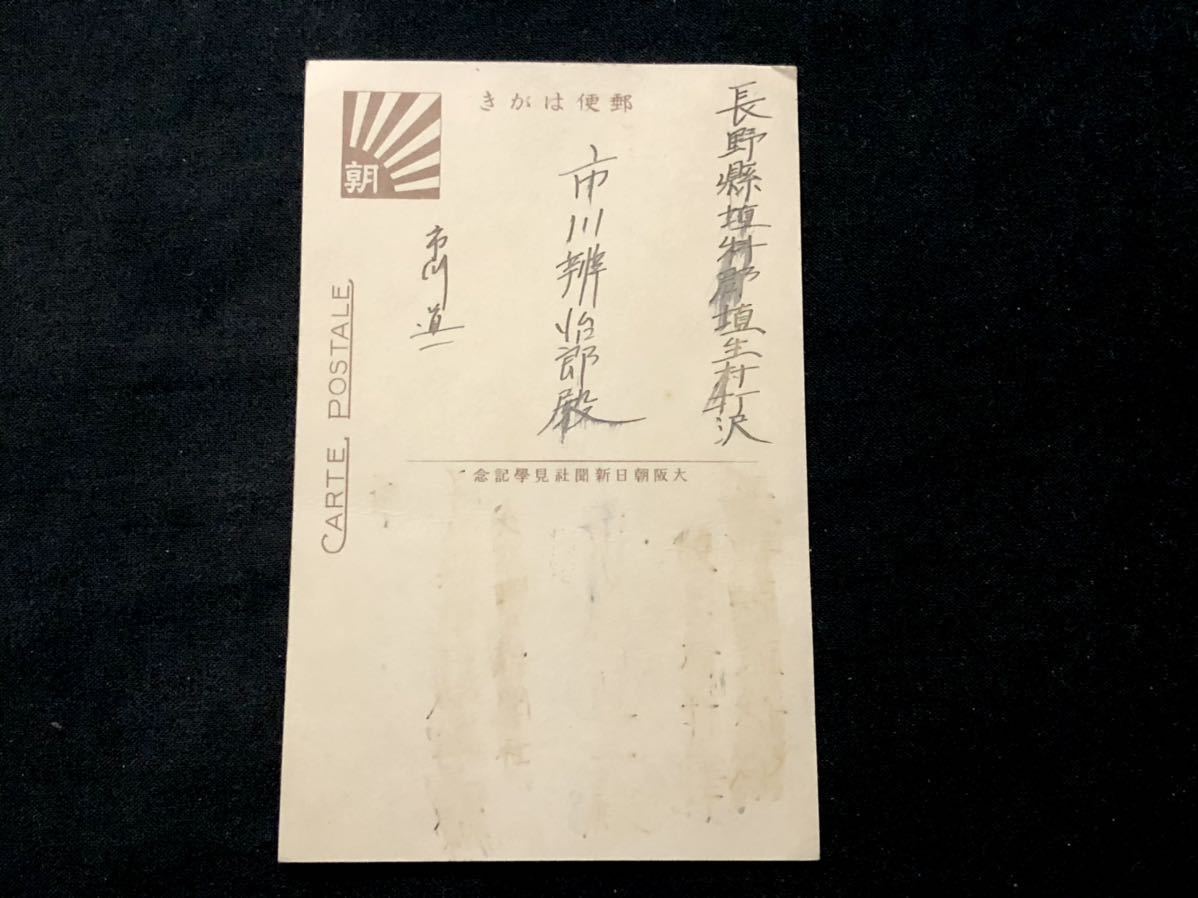 郵便はがき
長野縣埴科郡埴生村打沢
市川辨治郎殿
市川道一
朝
CARTE POSTALE
大阪朝日新聞社見學記念